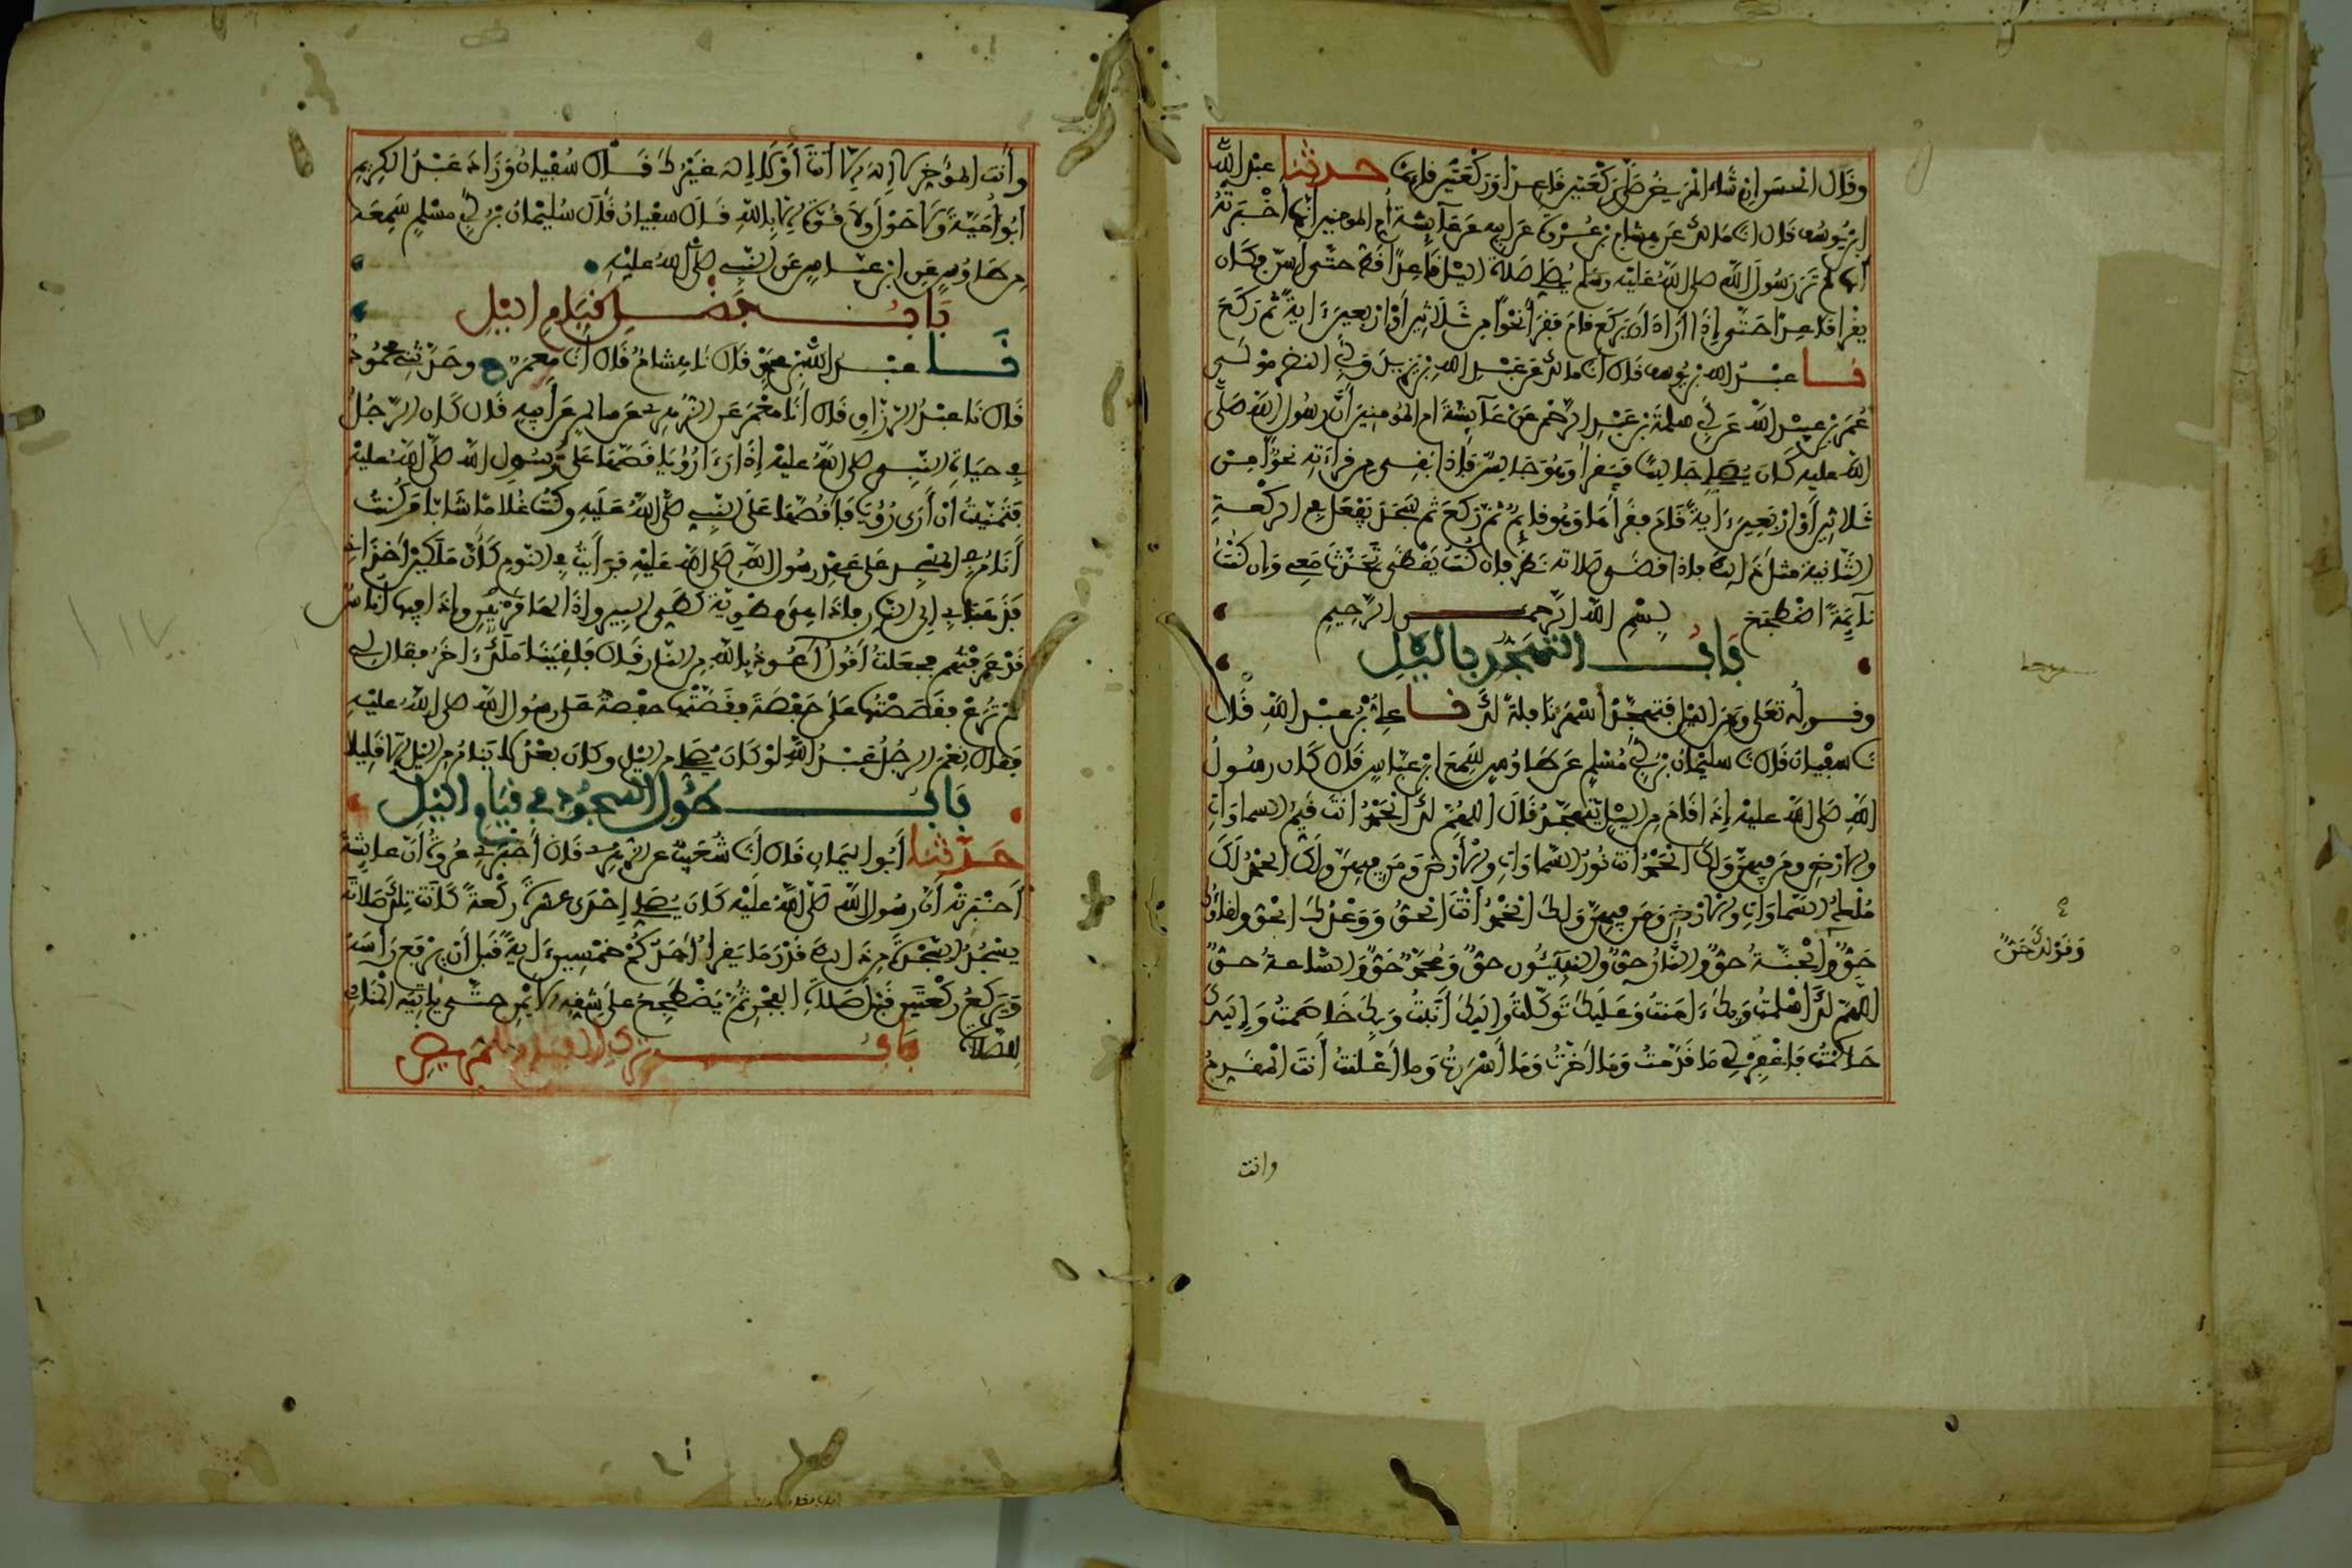 وقال الحسن إن شاء المريض صلى ركعتين قاعدا وركعتين قائما حدثنا عبد الله
ابن يوسف قال انا مالك عن هشام بن عروة عن أبيه عن عائشة أم المومنين أنها أخبرته
أنها لم تر رسول الله صلى الله عليه وسلم يصلي صلاة الليل قاعدا قط حتى أسن فكان
يقرا قاعدا حتى إذا أراد أن يركع قام فقرأ نحوا من ثلاثين أو أربعين ءاية ثم ركع
نا عبد الله بن يوسف قال انا مالك عن عبد الله بن يزيد وأبي النضر مولى
عمر بن عبيد الله عن أبي سلمة بن عبد الرحمن عن عائشة ام المومنين أن رسول الله صلى
الله عليه كان يصلي جالسا فيقرأ وهو جالس فإذا بقي من قراءته نحوا من
ثلاثين أو أربعين ءاية قام فقرأها وهو قائم ثم ركع ثم سجد يفعل في الركعة
الثانية مثل ذلك فإذا قضى صلاته نظر فإن كنت يقظى تحدث معي وإن كنت
نائمة اضطجع بسم الله الرحمن الرحيم
باب التهجد بالليل
وقوله تعلى ومن الليل فتهجد اسهر نافلة لك نا علي بن عبد الله قال
نا سفيان قال نا سليمان بن أبي مسلم عن طاوس سمع ابن عباس قال كان رسول
الله صلى الله عليه إذا قام من الليل يتهجد قال اللهم لك الحمد أنت قيم السماوات
والأرض ومن فيهن ولك الحمد أنت نور السماوات والأرض ومن فيهن ولك الحمد لك
ملك السماوات والأرض ومن فيهن ولك الحمد أنت الحق ووعدك الحق ولقاؤك
حق والجنة حق والنار حق والنبيئون حق ومحمد حق والساعة حق
وقولك حق
اللهم لك أسلمت وبك ءامنت وعليك توكلت وإليك أنبت وبك خاصمت وإليك
حاكمت فاغفر لي ما قدمت وما أخرت وما أسررت وما أعلنت أنت المقدم
وانت
وأنت المؤخر لا إله إلا أنت أو لا إله غيرك قال سفيان وزاد عبد الكريم
أبو أمية ولا حول ولا قوة إلا بالله قال سفيان قال سليمان بن أبي مسلم سمعه
من طاوس عن ابن عباس عن النبي صلى الله عليه
باب فضل قيام الليل
نا عبد الله بن محمد قال نا هشام قال انا معمر ح وحدثني محمود
قال نا عبد الرزاق قال أنا معمر عن الزهري عن سالم عن أبيه قال كان الرجل
في حياة النبي صلى الله عليه إذا رءا رؤيا قصها على رسول الله صلى الله عليه
فتمنيت أن أرى رؤيا فأقصها على النبي صلى الله عليه وكنت غلاما شابا وكنت
أنام في المسجد على عهد رسول الله صلى الله عليه فرأيت في النوم كأن ملكين أخذاني
فذهبا بي إلى النار فإذا هي مطوية كطي البير وإذا لها قرنين وإذا فيها أناس
قد عرفتهم فجعلت أقول أعوذ بالله من النار قال فلقينا ملك ءاخر فقال لي
لم ترع فقصصتها على حفصة فقصتها حفصة على رسول الله صلى الله عليه
فقال نعم الرجل عبد الله لو كان يصلي من الليل وكان بعد لا ينام من الليل إلا قليلا
باب طول السجود في قيام الليل
حدثنا أبو اليمان قال أنا شعيب عن الزهري قال أخبرني عروة أن عائشة
أخبرته أن رسول الله صلى الله عليه كان يصلي إحدى عشرة ركعة كانت تلك صلاته
يسجد السجدة من ذلك قدر ما يقرأ أحدكم خمسين ءاية قبل أن يرفع رأسه
ويركع ركعتين قبل صلاة الفجر ثم يضطجع على شقه الأيمن حتى يأتيه المنادي
للصلاة باب ترك القيام للمريض